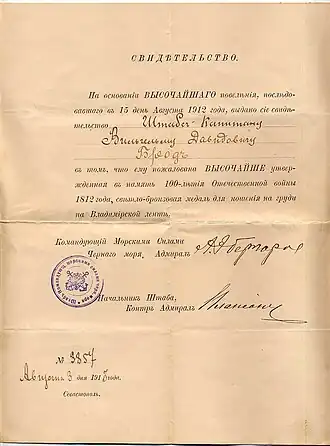 СВИДѢТЕЛЬСТВО.
На основаніи ВЫСОЧАЙШАГО повелѣнія, послѣдо-
вавшаго въ 15 день Августа 1912 года, выдано сіе свидѣ-
тельство Штабсъ-Капитану
Вильгельму Давидовичу
Бродъ
въ томъ, что ему пожалована ВЫСОЧАЙШЕ утвер-
жденная въ память 100-лѣтія Отечественной войны
1812 года, свѣтло-бронзовая медаль для ношенія на груди
на Владимірской лентѣ.
Командующій Морскими Силами
Чернаго моря, Адмиралъ
Начальникъ Штаба,
Контръ Адмиралъ
№ 3857
Августа 3 дня 191 года.
Севастополь.